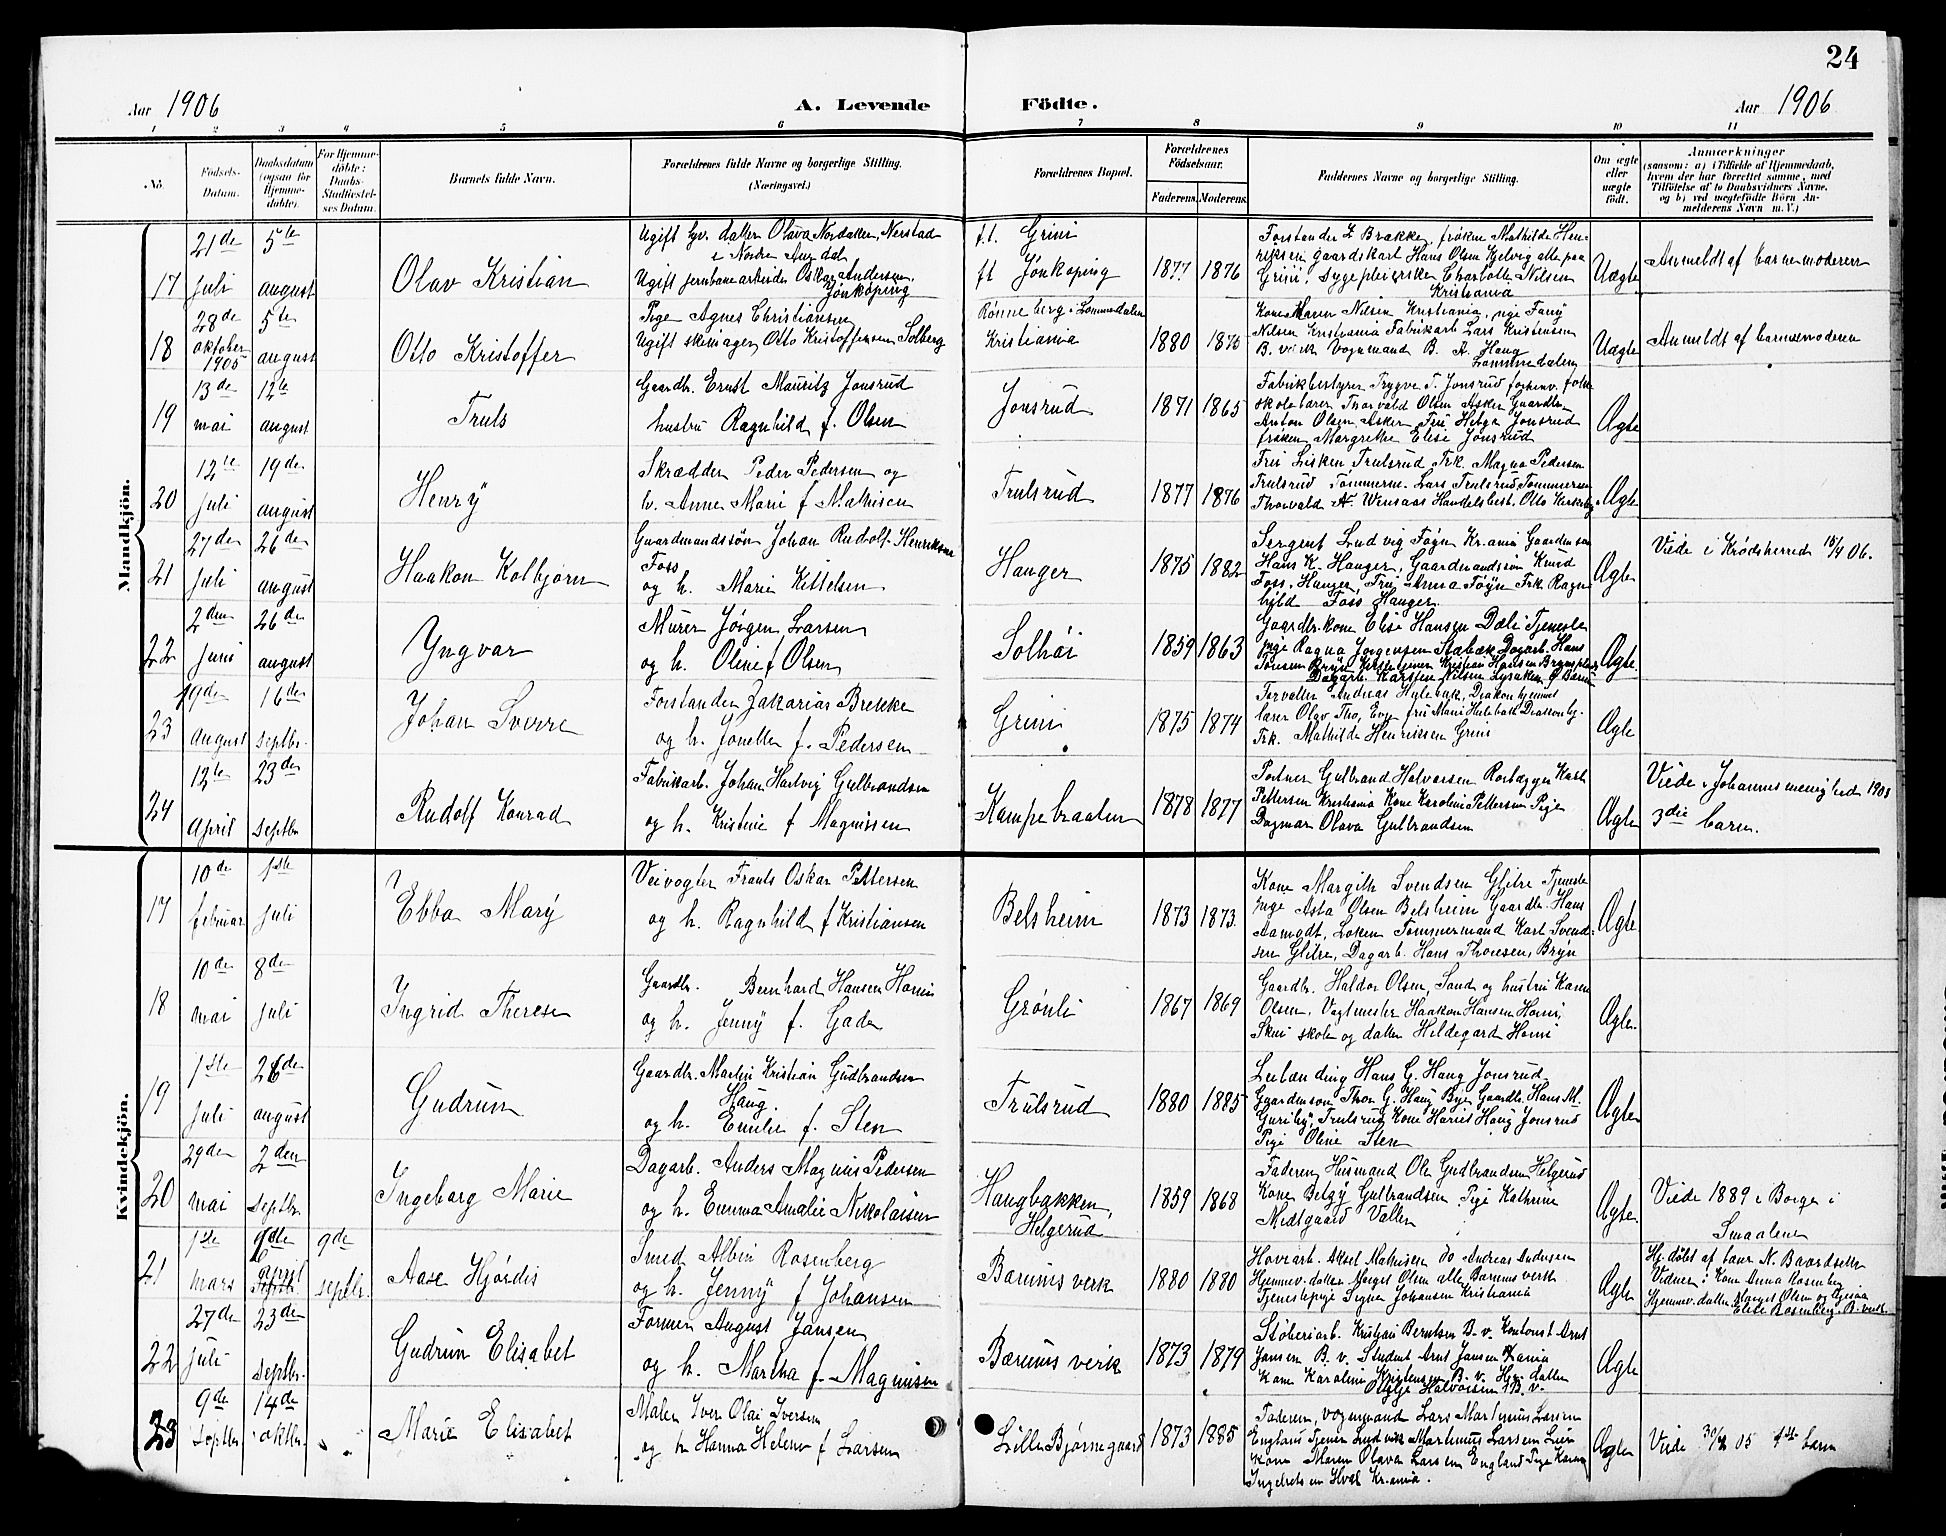 24
Aar 1906 A. Levende Födte. Aar 1906
1 2 3 4 5 6 7 8 9 10 11
No. Födsels-Datum. Daabsdatum (ogsaa for Hjemme-döbte). For Hjemme-döbte: Daabs-Stadfæstel-ses Datum. Barnets fulde Navn. Forældrenes fulde Navne og borgerlige Stilling. (Næringsvei.) Forældrenes Bopæl. Forældrenes Födselsaar. Faderens Moderens Faddernes Navne og borgerlige Stilling. Om ægte eller uægte födt. Anmærkninger
(saasom: a) i Tilfælde af Hjemmedaab, hvem der har forrettet samme, med Tilföielse af to Daabsvidners Navne, og b) ved uægtefödte Börn An-melderens Navn m. V.)
Mandkjön.
17 21de juli 5te august Olav Kristian
Ugift gv. datter Olava Nordalen, Nerstad
i Nordre Aurdal
Ugift jernbanearbeider Oskar Andersen, Jönköping
f.t. Grini
ft Jönköping
1877 1876
Forstander Z Brekke, frøken Mathilde Hen-
riksen gaardskarl Hans Olsen Hjelvig alle paa
Grini, Sygepleierske Charlotte Nilsen
Kristiania
Uægte
Anmeldt af barnemoderen
18 28de oktober 1905 5te august Otto Kristoffer
Pige Agnes Christiansen
Ugift skomager Otto Kristoffersen Solberg
Rønneberg i Lommedalen
Kristiania
1880 1875
Kone Maren Nilsen Kristiania, pige Fanny
Nilsen Kristiania Fabrikarb Lars Kristensen
B. verk Vognmand B. A. Haug
Lommedalen
Uægte
Anmeldt af barnemoderen
19 13de mai 12te august Truls
Gaardbr. Ernst Mauritz Jonsrud
hustru Ragnhild f. Olsen
Jonsrud
1871 1865
Fabrikbestyrer Trygve T. Jonsrud forhenv. folke
skolelærer Thorvald Olsen Asker Gaardbr.
Anton Olsen Asker Fru Helga Jonsrud
frøken Margrethe Elise Jonsrud
Ægte
20 12te juli 19de august Henry
Skrædder Peder Pedersen og
h. Anne Marie f Mathisen
Trulsrud
1877 1876
Fru Lisken Trulsrud Frk. Magna Pedersen
Trulsrud Tömmerm. Lars Trulsrud Tömmerm
Thorvald A. Wensaas Handelsbest. Otto Kirkeby
Ægte
21 27de juli 26de august Haakon Kolbjørn
Gaardmandssön Johan Rudolf Henriksen
Foss
og h. Marie Kittelsen
Hauger
1875 1882
Sergent Ludvig Føyn Kr.ania Gaardmann
Hans K. Hauger, Gaardmandssön Knud
Foss, Hauger Fru Anna Føyn Frk Ragn
hild Foss Hauger.
Ægte
Viede i Krødsherred 15/4 06.
22 2den juni 26de august Yngvar
Murer Jörgen Larsen
og h. Oline f Olsen
Solhöi
1859 1863
Gaardbr.kone Elise Hansen Dæli Tjeneste
pige Ragna Jorgensen Stabæk Dagarb. Hans
Tonsen Bryn Kristian Hansen
Dagarb. Karsten Nilsen Lysaker Ø Bærum
Ægte.
23 19de august 16de septbr. Johan Sverre
Forstander Zakarias Brekke
og h. Jonette f. Pedersen
Grini
1875 1874
Forvalter Andreas Hulebak, Diakonhjemmet
lærer Olav Tho, Evje fru Marie Hulebak Diakonhj.
Frk. Mathilde Henriksen Grini
Ægte
24 12te April 23de Septbr Rudolf Konrad
Fabrikarb. Johan Hartvig Gulbrandsen
og h. Kristine f Magnussen
Kampebraaten
1878 1877
Portner Gulbrand Halvorsen Rørlægger Karl
Pettersen Kristiania Kone Karoline Pettersen Pige
Dagmar Olava Gulbrandsen
Ægte
Viede i Johannes menighed 1903
3die barn.
Kvindekjön.
17 10de februar 1ste juli Ebba Marÿ
Veivogter Frants Oskar Pettersen
og h. Ragnhild f Kristiansen
Belsheim
1873 1873.
Kone Margith Svendsen Glitre Tjeneste
pige Asta Olsen Belsheim Gaardbr. Hans
Aamodt, Løken Tømmermand Karl Svend-
sen Glitre, Dagarb. Hans Thonesen, Bryn
Ægte
18 10de mai 8de juli Ingrid Therese
Gaardbr. Bernhard Hansen Horni
og h. Jenny f. Gade
Grönli
1867 1869
Gaardbr. Haldor Olsen, Sand og hustru Karen
Olsen, Vagtmester Haakon Hansen Horni,
Skui skole og datter Hildegard Horni
Ægte.
19 1ste juli 26de august Gudrun
Gaardbr. Martin Kristian Gudbrandsen
Haug.
og h. Emilie f. Sten
Trulsrud
1880 1885
Leilænding Hans G. Haug Jonsrud,
Gaardmson Thor G. Haug Bye Gaardbr. Hans M.
Guriby, Trulsrud Kone Haug Jonsrud
Pige Oline Sten
Ægte
20 29de mai 2den Septbr Ingeborg Marie
Dagarb. Anders Magnus Pedersen
og h. Emma Amalie Nikolaisen
Haugbakken,
Helgerud
1859 1868
Faderen, Husmand Ole Gudbrandsen Helgerud
Kone Betzy Gulbrandsen, Pige Kathrine
Medtgaard Vallen
Ægte.
Viede 1889 i Borge i
Smaalene
21 1ste mars april 9de septbr. Aase Hjördis
Smed Albin Rosenberg
og h. Jenny f Johansen
Bærums verk
1880 1880
Høveriarb. Aksel Mathisen do Andreas Andersen
Hjemmev. datter Marget Olsen alle Bærums verk
Tjenestepige Signe Johansen Kristiania
Ægte
Hj. döbt af lærer N. Baardseth
Vidner: Kone Anna Rosenberg
Hjemmev. datter Marget Olsen og
Elise Rosenberg, B. verk
22 27de juli 23de septbr. Gudrun Elisabet
Former August Jansen
og h. Martha f. Magnusen
Bærums verk
1873 1879
Støberiarb. Kristian Berntsen B. v. Kontorist Arnt
Jansen B. v. Student Arnt Jansen Xania
Kone Karoline Kristensen B. v. Hj. datter
Halvorsen B. v.
Ægte
23 9de septbr. 14de oktbr. Marie Elisabet
Maler Iver Olai Iversen
og h Hanna Helene f Larsen
Lille Bjørnegaard
1873 1885
Faderen, vognmand Lars Martinius Larsen
England Tjener Ludvik Martinius Larsen Lier
Kone Maren Olava Larsen England Pige Karen
Ingebretsen Hval Kr.ania.
Ægte
Viede 30/4 05 1ste barn